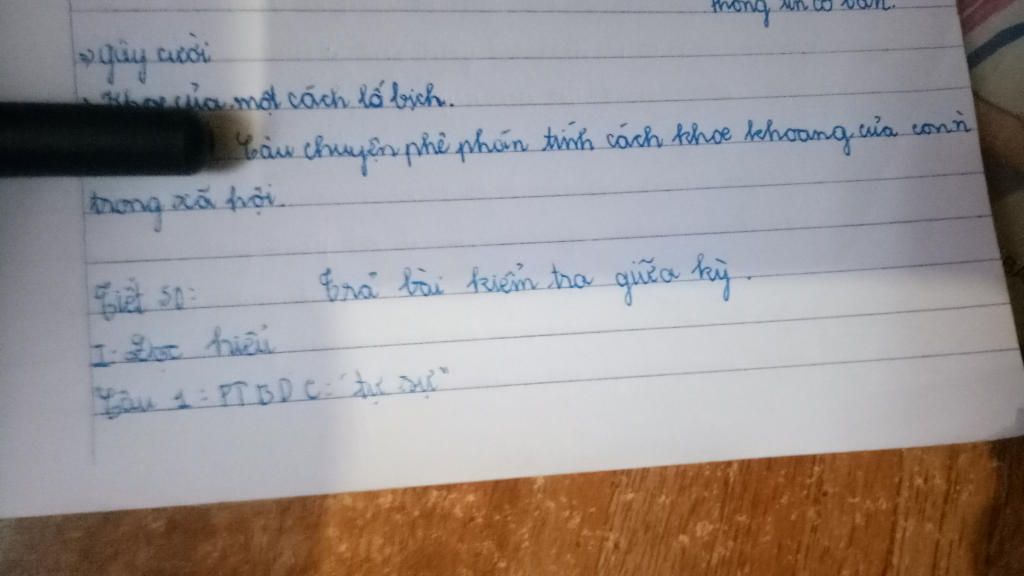 thông tin cơ bản.
=> gây cười
Khoe của một cách lố bịch.
Câu chuyện phê phán tính cách khoe khoang của con n
trong xã hội.
Tiết 50: Trả bài kiểm tra giữa kỳ.
I: Đọc hiểu
Câu 1: PTBDC: "tự sự"